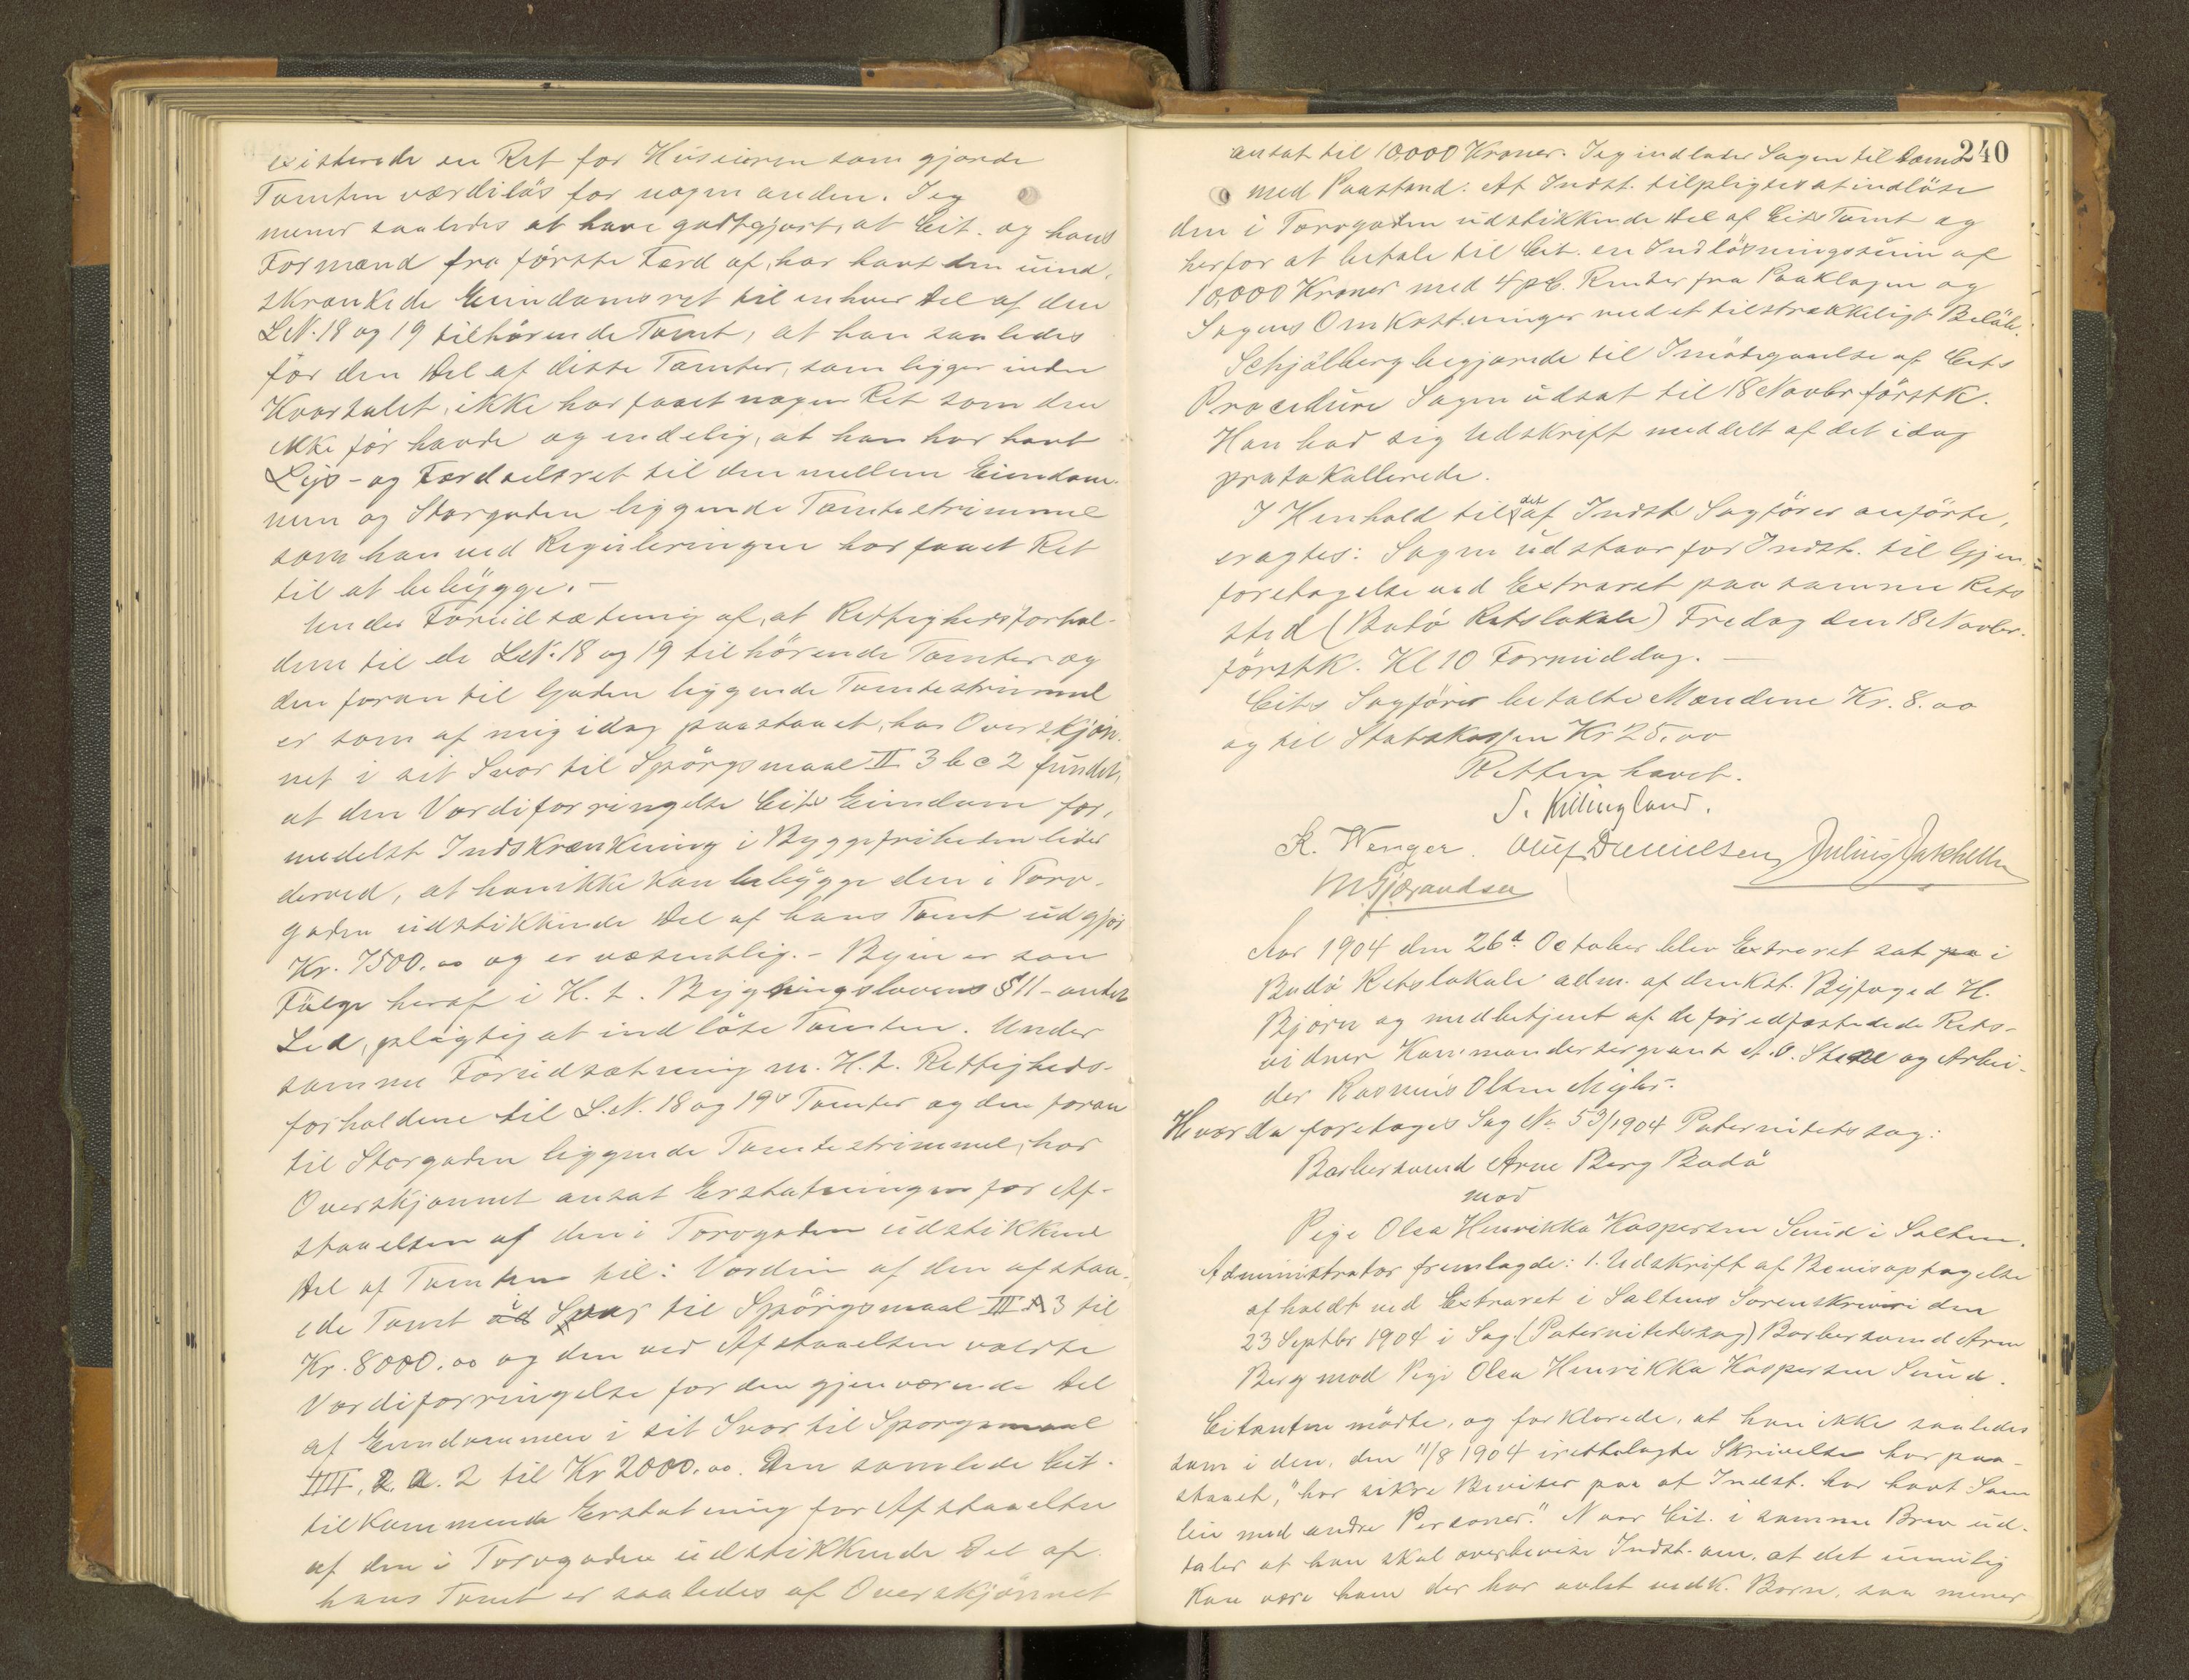 existerede en Ret for Huseieren som gjorde
Tomten værdiløs for nogen anden. Jeg
mener saaledes at have godtgjort, at Cit. og hans
Formænd fra første Færd af, har havt den uind-
skrænkede Eiendomsret til enhver Del af den
L.N. 18 og 19 tilhørende Tomt, at han saaledes
for den Del af disse Tomter, som ligger inden
Kvartalet, ikke har faaet nogen Ret som den
ikke før havde og endelig, at han har havt
Lys- og Færdselsret til den mellem Eiendom-
men og Storgaden liggende Tomtestrimmel
som han ved Reguleringen har faaet Ret
til at bebygge.-
Under Forudsætning af, at Rettighedsforhol-
dene til de L.N. 18 og 19 tilhørende Tomter og
den foran til Gaden liggende Tomtestrimmel
er som af mig idag paastaaet, har Overskjøn-
net i sit Svar til Spørgsmaal II 3 b c 2 fundet,
at den Værdiforringelse Cits Eiendom for-
medelst Indskrænkning i Byggefriheden lider
derved, at han ikke kan bebygge den i Torv-
gaden udstikkende Del af hans Tomt udgjør
Kr. 7500.00 og er væsentlig.- Byen er som
Følge heraf i H. t. Bygningslovens § 11 - andet
Led, pligtig at indløse Tomten. Under
samme Forudsætning m. H. t. Rettigheds-
forholdene til L.N. 18 og 19s Tomter og den foran
til Storgaden liggende Tomtestrimmel, har
Overskjønnet ansat Erstatningen for Af-
staaelsen af den i Torvgaden udstikkende
Del af Tomten til: Værdien af den afstaa-
ede Tomt Svar til Spørgsmaal III A 3 til
Kr. 8000.00 og den ved Afstaaelsen voldte
Værdiforringelse for den gjenværende Del
af Eiendommen i sit Svar til Spørgsmaal
III, 2. a. 2 til Kr 2000.00. Den samlede Cit.
tilkommende Erstatning for Afstaaelse
af den i Torvgaden udstikkende Del af
hans Tomt er saaledes af Overskjønnet
240
ansat til 10,000 Kroner. Jeg indlader Sagen til Doms
med Paastand: At Indst. tilpligtes at indløse
den i Torvgaden udstikkende Del af Cits Tomt og
herfor at betale til Cit. en Indløsningssum af
10,000 Kroner med 4 pC. Renter fra Paaklagen og
Sagens Omkostninger med et tilstrækkeligt Beløb.
Schjølberg begjærede til Imødegaaelse af Cits
Procedure Sagen udsat til 18 Novbr førstk.
Han bad sig Udskrift meddelt af det idag
protokollerede.
I Henhold til det af Indst Sagfører anførte,
eragtes: Sagen udstaar for Indst. til Gjen-
foretagelse ved Extraret paa samme Rets
sted (Bodø Retslokale) Fredag den 18 Novbr.
førstk. Kl 10 Formiddag.-
Cits Sagfører betalte Mændene Kr. 8.00
og til Statskassen Kr 25.00
Retten hævet.
S. Killingland.
K. Wenger. Oluf Danielsen Julius Jakhelln
M. Gjærandsen
Aar 1904 den 26d October blev Extraret sat i
Bodø Retslokale adm. af den kst. Byfoged H.
Bjørn og medbetjent af de for edfæstede Rets-
vidner Kommandersergeant A. O. Steen og Arbei-
der Rasmus Olsen Myhr.
Hvorda foretoges Sag No 53/1904 Paternitetssag:
Barbersvend Arne Berg Bodø
mod
Pige Olea Henrikka Kaspersen Sund i Salten.
Administrator fremlagde: 1. Udskrift af Bevisoptagelse
afholdt ved Extraret i Saltens Sorenskriveri den
23 Septbr 1904 i Sag (Paternitetssag) Barbersvend Arne
Berg mod Pige Olea Henrikka Kaspersen Sund.
Citanten mødte, og forklarede, at han ikke saaledes
som i den, den 11/8 1904 irettelagte Skrivelse har paa-
staaet, "har sikre Beviser paa at Indst. har havt Sam
leie med andre Personer." Naar Cit. i samme Brev ud-
taler at han skal overbevise Indst. om, at det umulig
kan være ham der har avlet vedk. Barn, saa mener